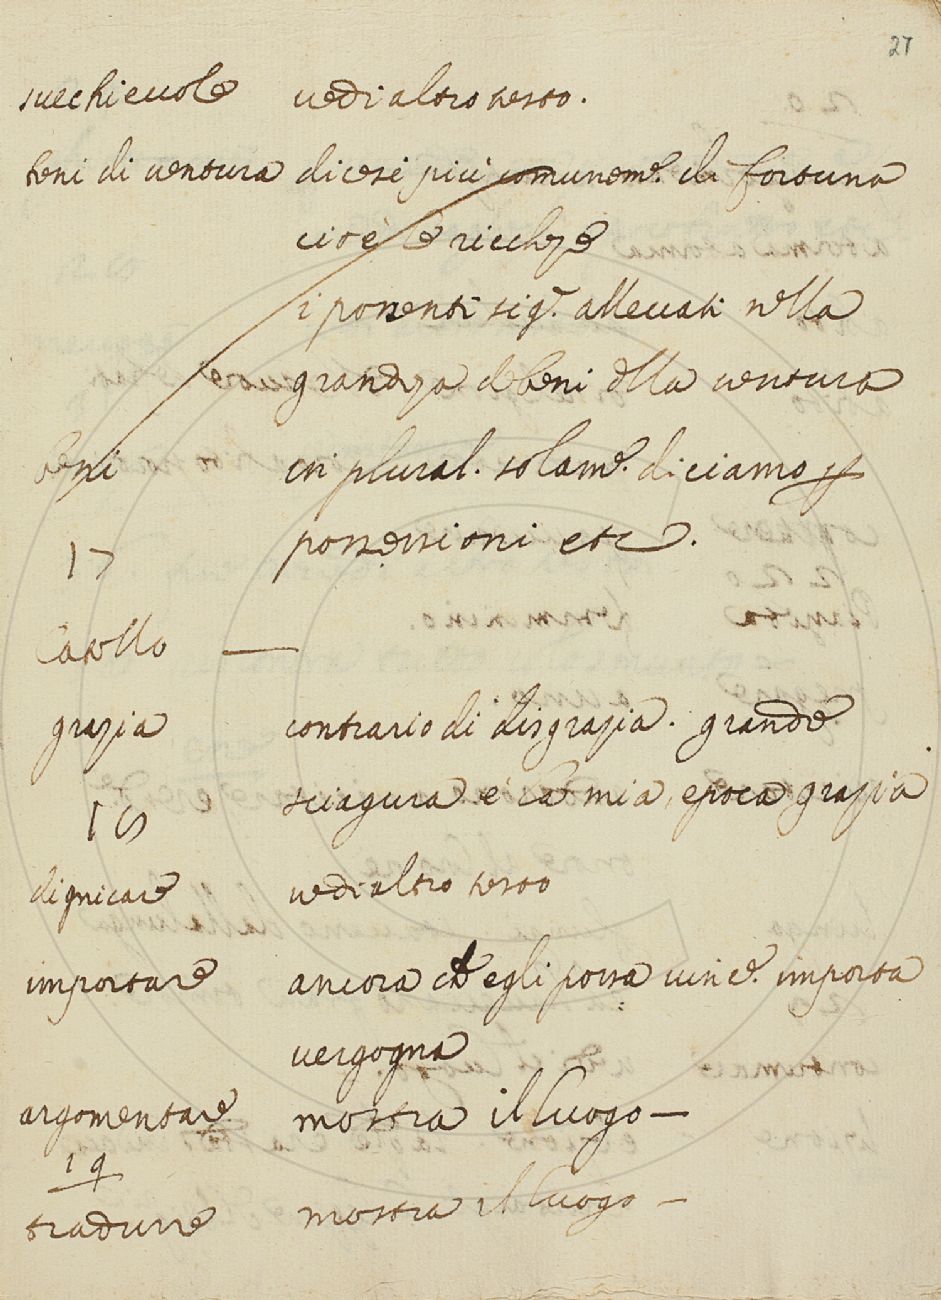 27
suechieuole vedi altro testo.
beni di ventura dicesi più comuneme. di fortuna
cioè le ricchze
i potenti sigri. alleuati nella
grandeza de beni della ventura
beni in plural. solame. diciamo p
possessioni etc.
17
Catello —
grazia contrario di disgrazia. grande
sciagura è la mia, e poca grazia
18
dignicare vedi altro testo
importare ancora che egli possa vincre. importa
vergogna
argomentare mostra il luogo —
19
tradurre mostra il luogo —